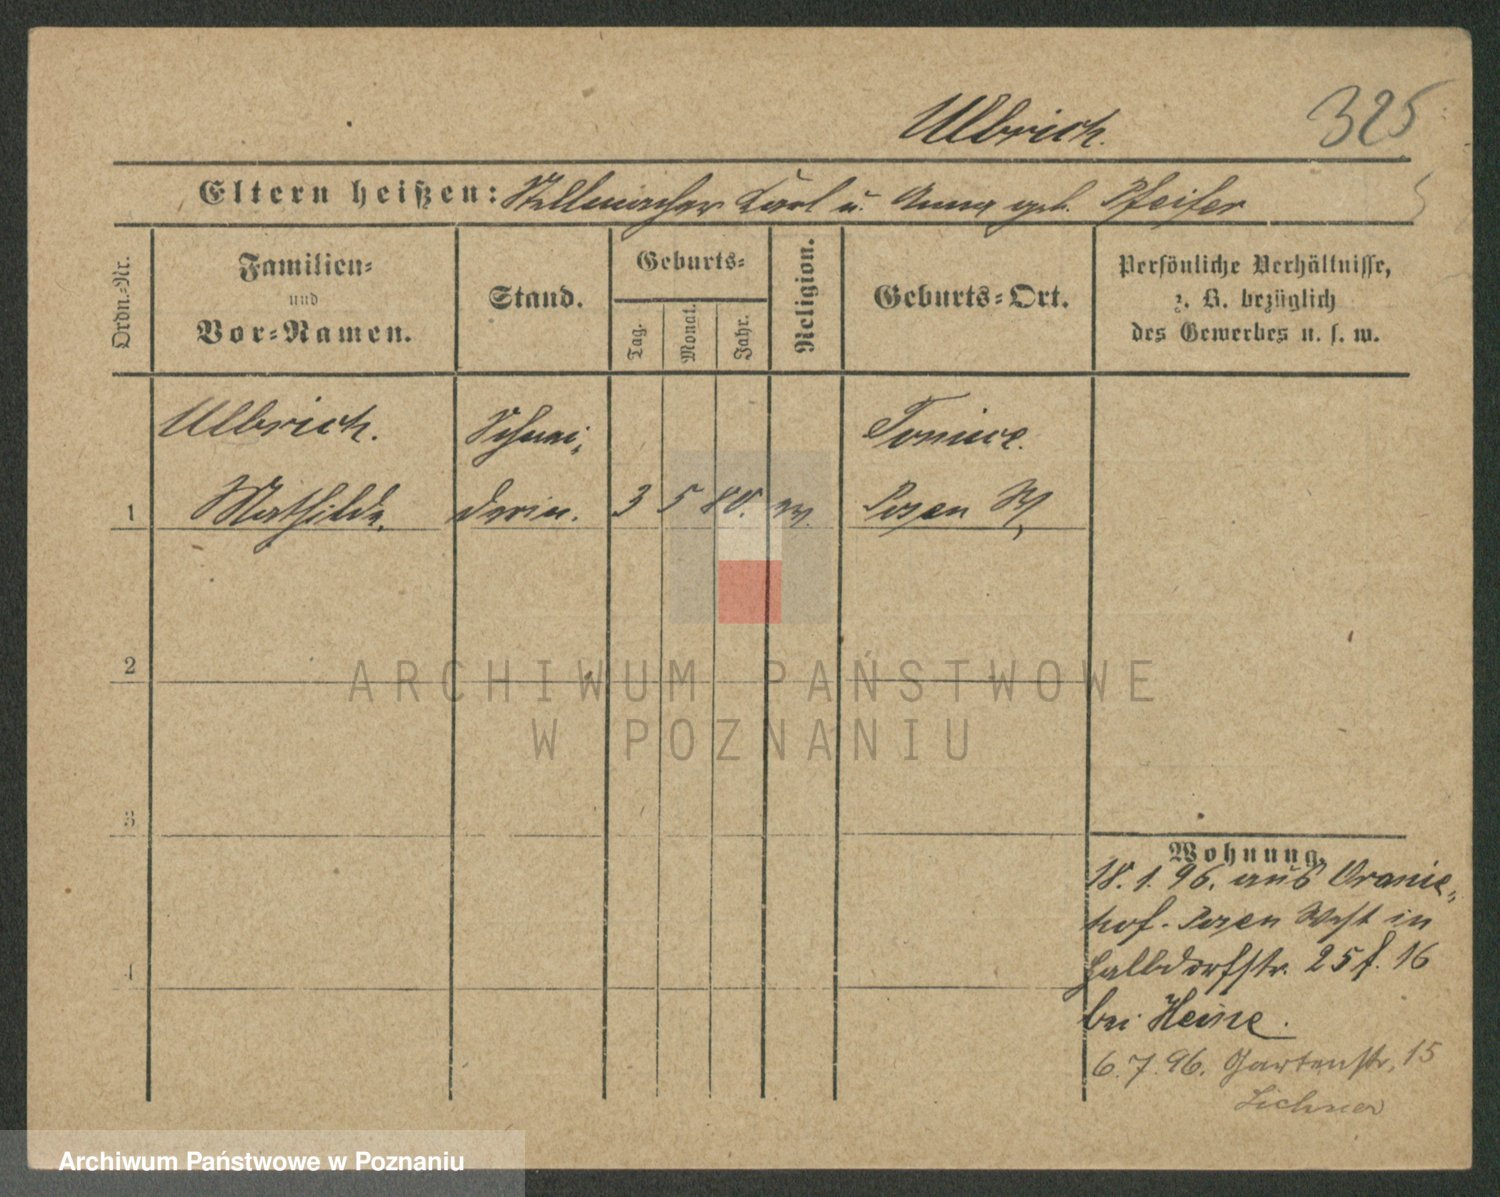 Ulbrich.
325
Eltern heißen: Stellmacher Carl u. Anna geb. Pfeifer
Ordn.-Nr.
Familien-
und
Vor-Namen.
Stand.
Geburts-
Tag.
Monat.
Jahr.
Religion.
Geburts-Ort.
Persönliche Verhältnisse,
z. B. bezüglich
des Gewerbes u. s. w.
Ulbrich. Schnei-
1 Mathilde. derin. 3 5 80. Posen W,
2
3
4
Wohnung.
18. 1. 96. aus Oranie-
hof. Posen West in
Halbdorfstr. 25 f. 16
bei Heine.
6. 7. 96. Gartenstr. 15
Lichner
ARCHIWUM PAŃSTWOWE
W POZNANIU
Archiwum Państwowe w Poznaniu